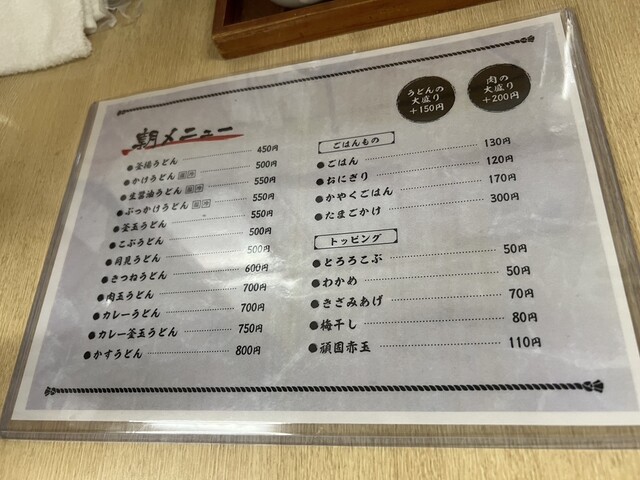 うどんの
大盛り
+150円
肉の
大盛り
+200円
朝メニュー
●釜揚うどん 450円
●かけうどん 温 冷 500円
●生醤油うどん 温 冷 550円
●ぶっかけうどん 温 冷 550円
●釜玉うどん 550円
●こぶうどん 500円
●月見うどん 500円
●きつねうどん 600円
●肉玉うどん 700円
●カレーうどん 700円
●カレー釜玉うどん 750円
●かすうどん 800円
ごはんもの
●ごはん 130円
●おにぎり 120円
●かやくごはん 170円
●たまごかけ 300円
トッピング
●とろろこぶ 50円
●わかめ 50円
●きざみあげ 70円
●梅干し 80円
●頑固赤玉 110円